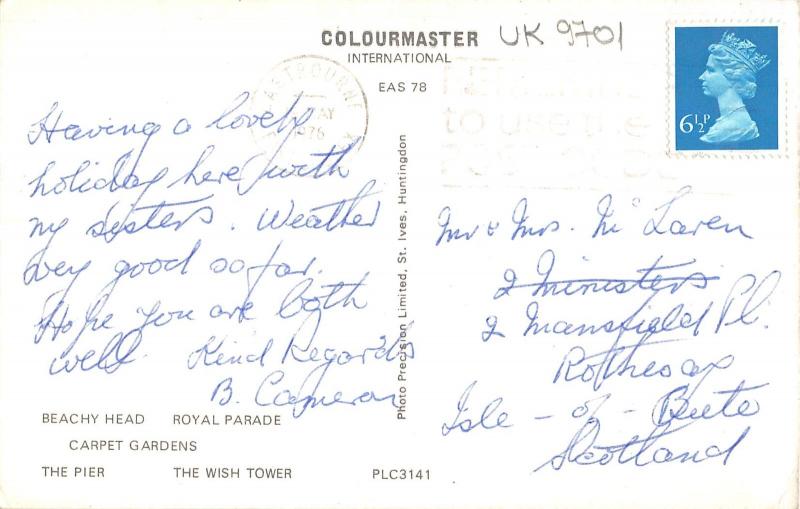 COLOURMASTER
INTERNATIONAL
EAS 78
UK 9701
EASTBOURNE
MAY
1976
to use the
6½P
Having a lovely
holiday here with
my sisters. Weather
very good so far.
Hope you are both
well. Kind Regards
B. Cameron
Photo Precision Limited, St. Ives, Huntingdon
Mr & Mrs. Mc Laren
2 Ministers
2 Mansfield Pl.
Rothesay
Isle - of - Bute
Scotland
BEACHY HEAD ROYAL PARADE
CARPET GARDENS
THE PIER THE WISH TOWER
PLC3141